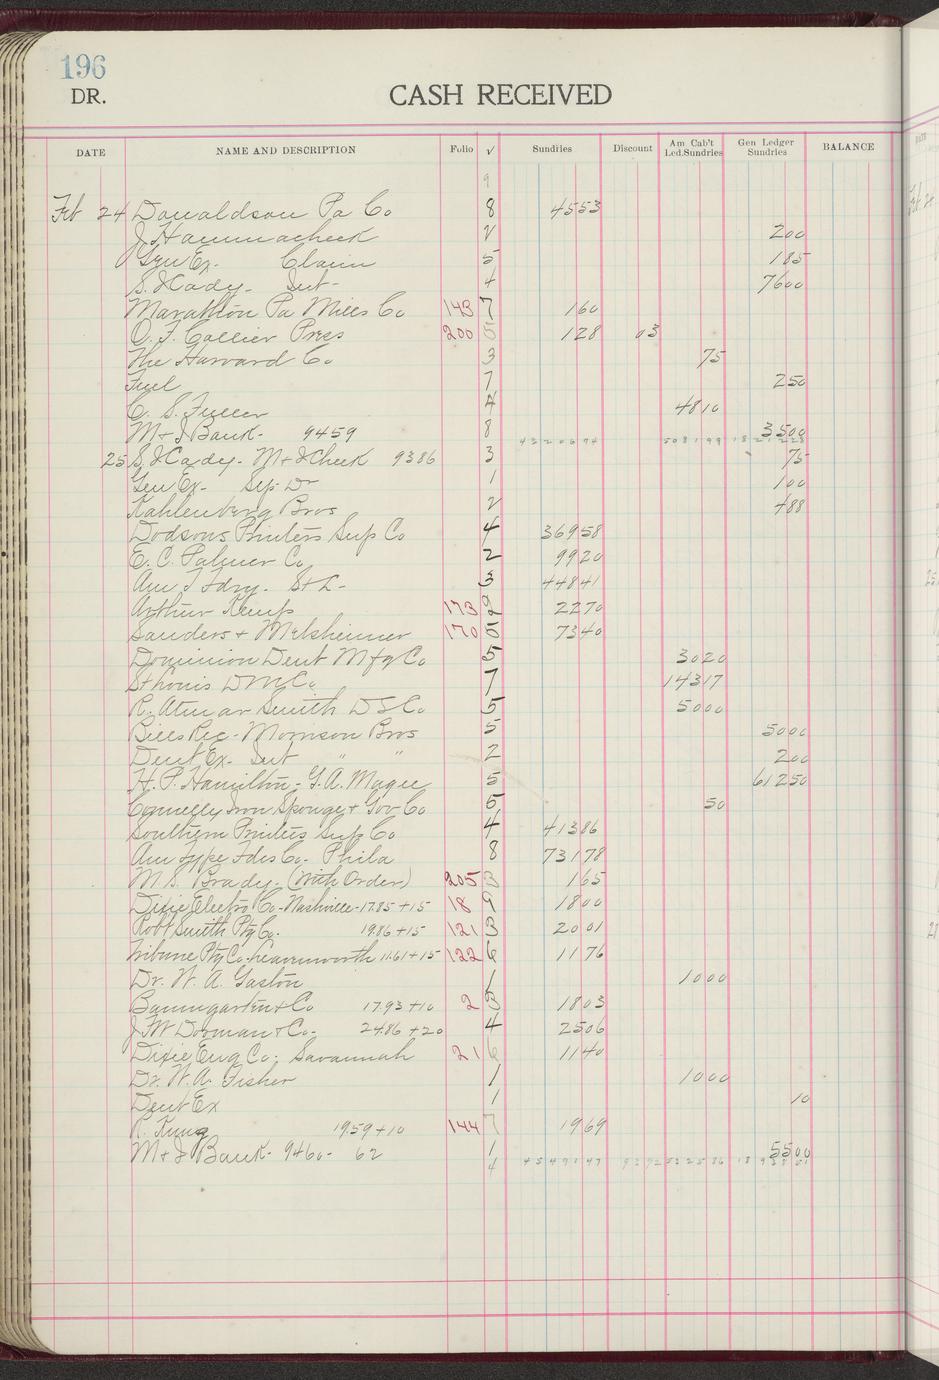 196
DR. CASH RECEIVED
DATE NAME AND DESCRIPTION Folio √ Sundries Discount Am Cab't Led.Sundries Gen Ledger Sundries BALANCE
9
Feb 24 Donaldson Pa Co 8 4553
J Hammacheck 2 200
Gen Ex. Claim 5 185
S. J Cady. Int- 4 7600
Marathon Pa Mills Co 143 7 160
O. F. Collier Press 200 5 128 03
The Harvard Co 3 75
Fuel 7 250
C. S. Fuller 4 4810
M+I Bank- 9459 8 3500
25 S. J Cady- M+I Check 9386 3 75
Gen Ex- Sep Dr 1 100
Kahlenberg Bros 2 488
Dodsons Printers Sup Co 4 36958
E. C. Palmer Co 2 9920
Am T Fdry. St L- 3 44841
Arthur Kemp 173 9 2270
Sanders + Melsheimer 170 5 7340
Dominion Dent Mfg Co 5 3020
St Louis D M Co 7 14317
R. Atmar Smith D S Co 5 5000
Bills Rec- Morrison Bros 5 5000
Dent Ex- Int " " 2 200
H. P. Hamilton- G. A. Magee 5 61250
Connelly Iron Sponge + Gov Co 5 50
Southern Printers Sup Co 4 41386
Am Type Fdrs Co- Phila 8 73178
M. S. Brady- (with Order) 205 3 165
Dixie Electro Co-Nashville-17.85+15 18 9 1800
Robt Smith Ptg Co- 19.86+15 121 3 2001
Tribune Ptg Co-Leavenworth 11.61+15 122 6 1176
Dr. W. A. Gaston 1 1000
Baumgarten + Co 17.93+10 2 3 1803
J W Dorman + Co- 24.86+20 4 2506
Dixie Eng Co- Savannah 21 6 1140
Dr. W. A. Fisher 1 1000
Dent Ex 1 10
R. King 19.59+10 144 7 1969
M+I Bank- 9460- 62 1 5500
4